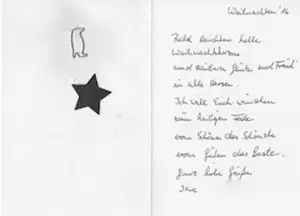 Weihnachten '16
Bald leuchten helle
Weihnachtskerzen
und zaubern Glück und Freud'
in alle Herzen.
Ich will Euch wünschen
zum heiligen Feste
vom Schönen das Schönste
vom Guten das Beste.
Ganz liebe Grüße
Ihre